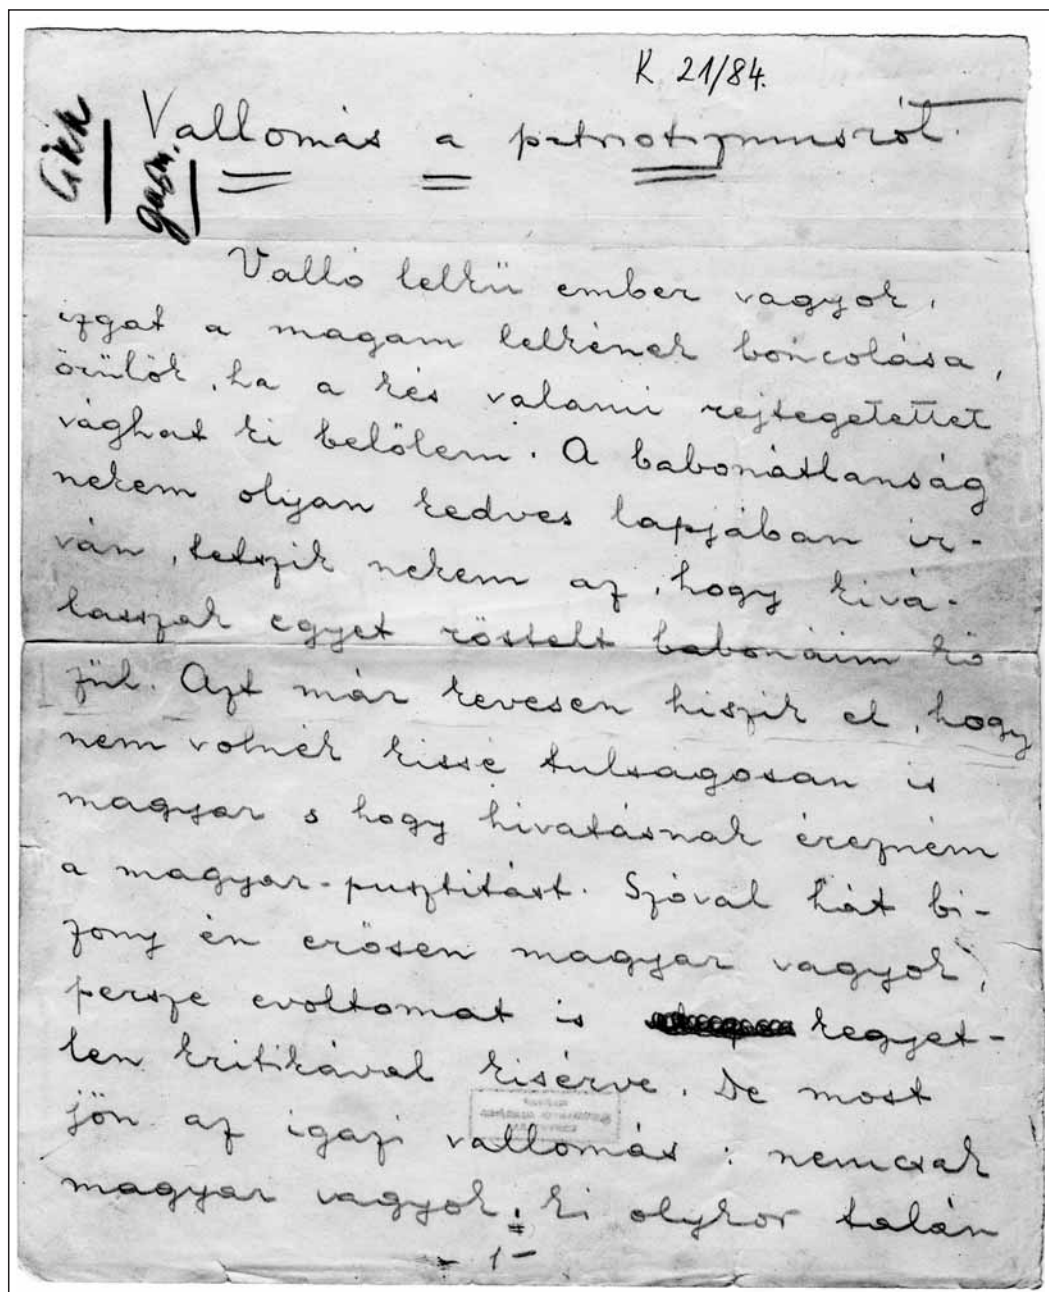 K. 21/84.
Cikk
garm.
Vallomás a patriotizmusról.
Valló lelkü ember vagyok,
izgat a magam lelkének boncolása,
örülök, ha a kés valami rejtegetettet
vághat ki belőlem. A babonátlanság
nekem olyan kedves lapjában ir-
ván, tetszik nekem az, hogy kivá-
lasszak egyet röstelt babonáim kö-
zül. Azt már kevesen hiszik el, hogy
nem volnék kissé tulságosan is
magyar s hogy hivatásnak érezném
a magyar-pusztitást. Szóval hát bi-
zony én erősen magyar vagyok,
persze evoltomat is kegyet-
len kritikával kisérve. De most
jön az igazi vallomás: nemcsak
magyar vagyok, ki olykor talán
- 1 -